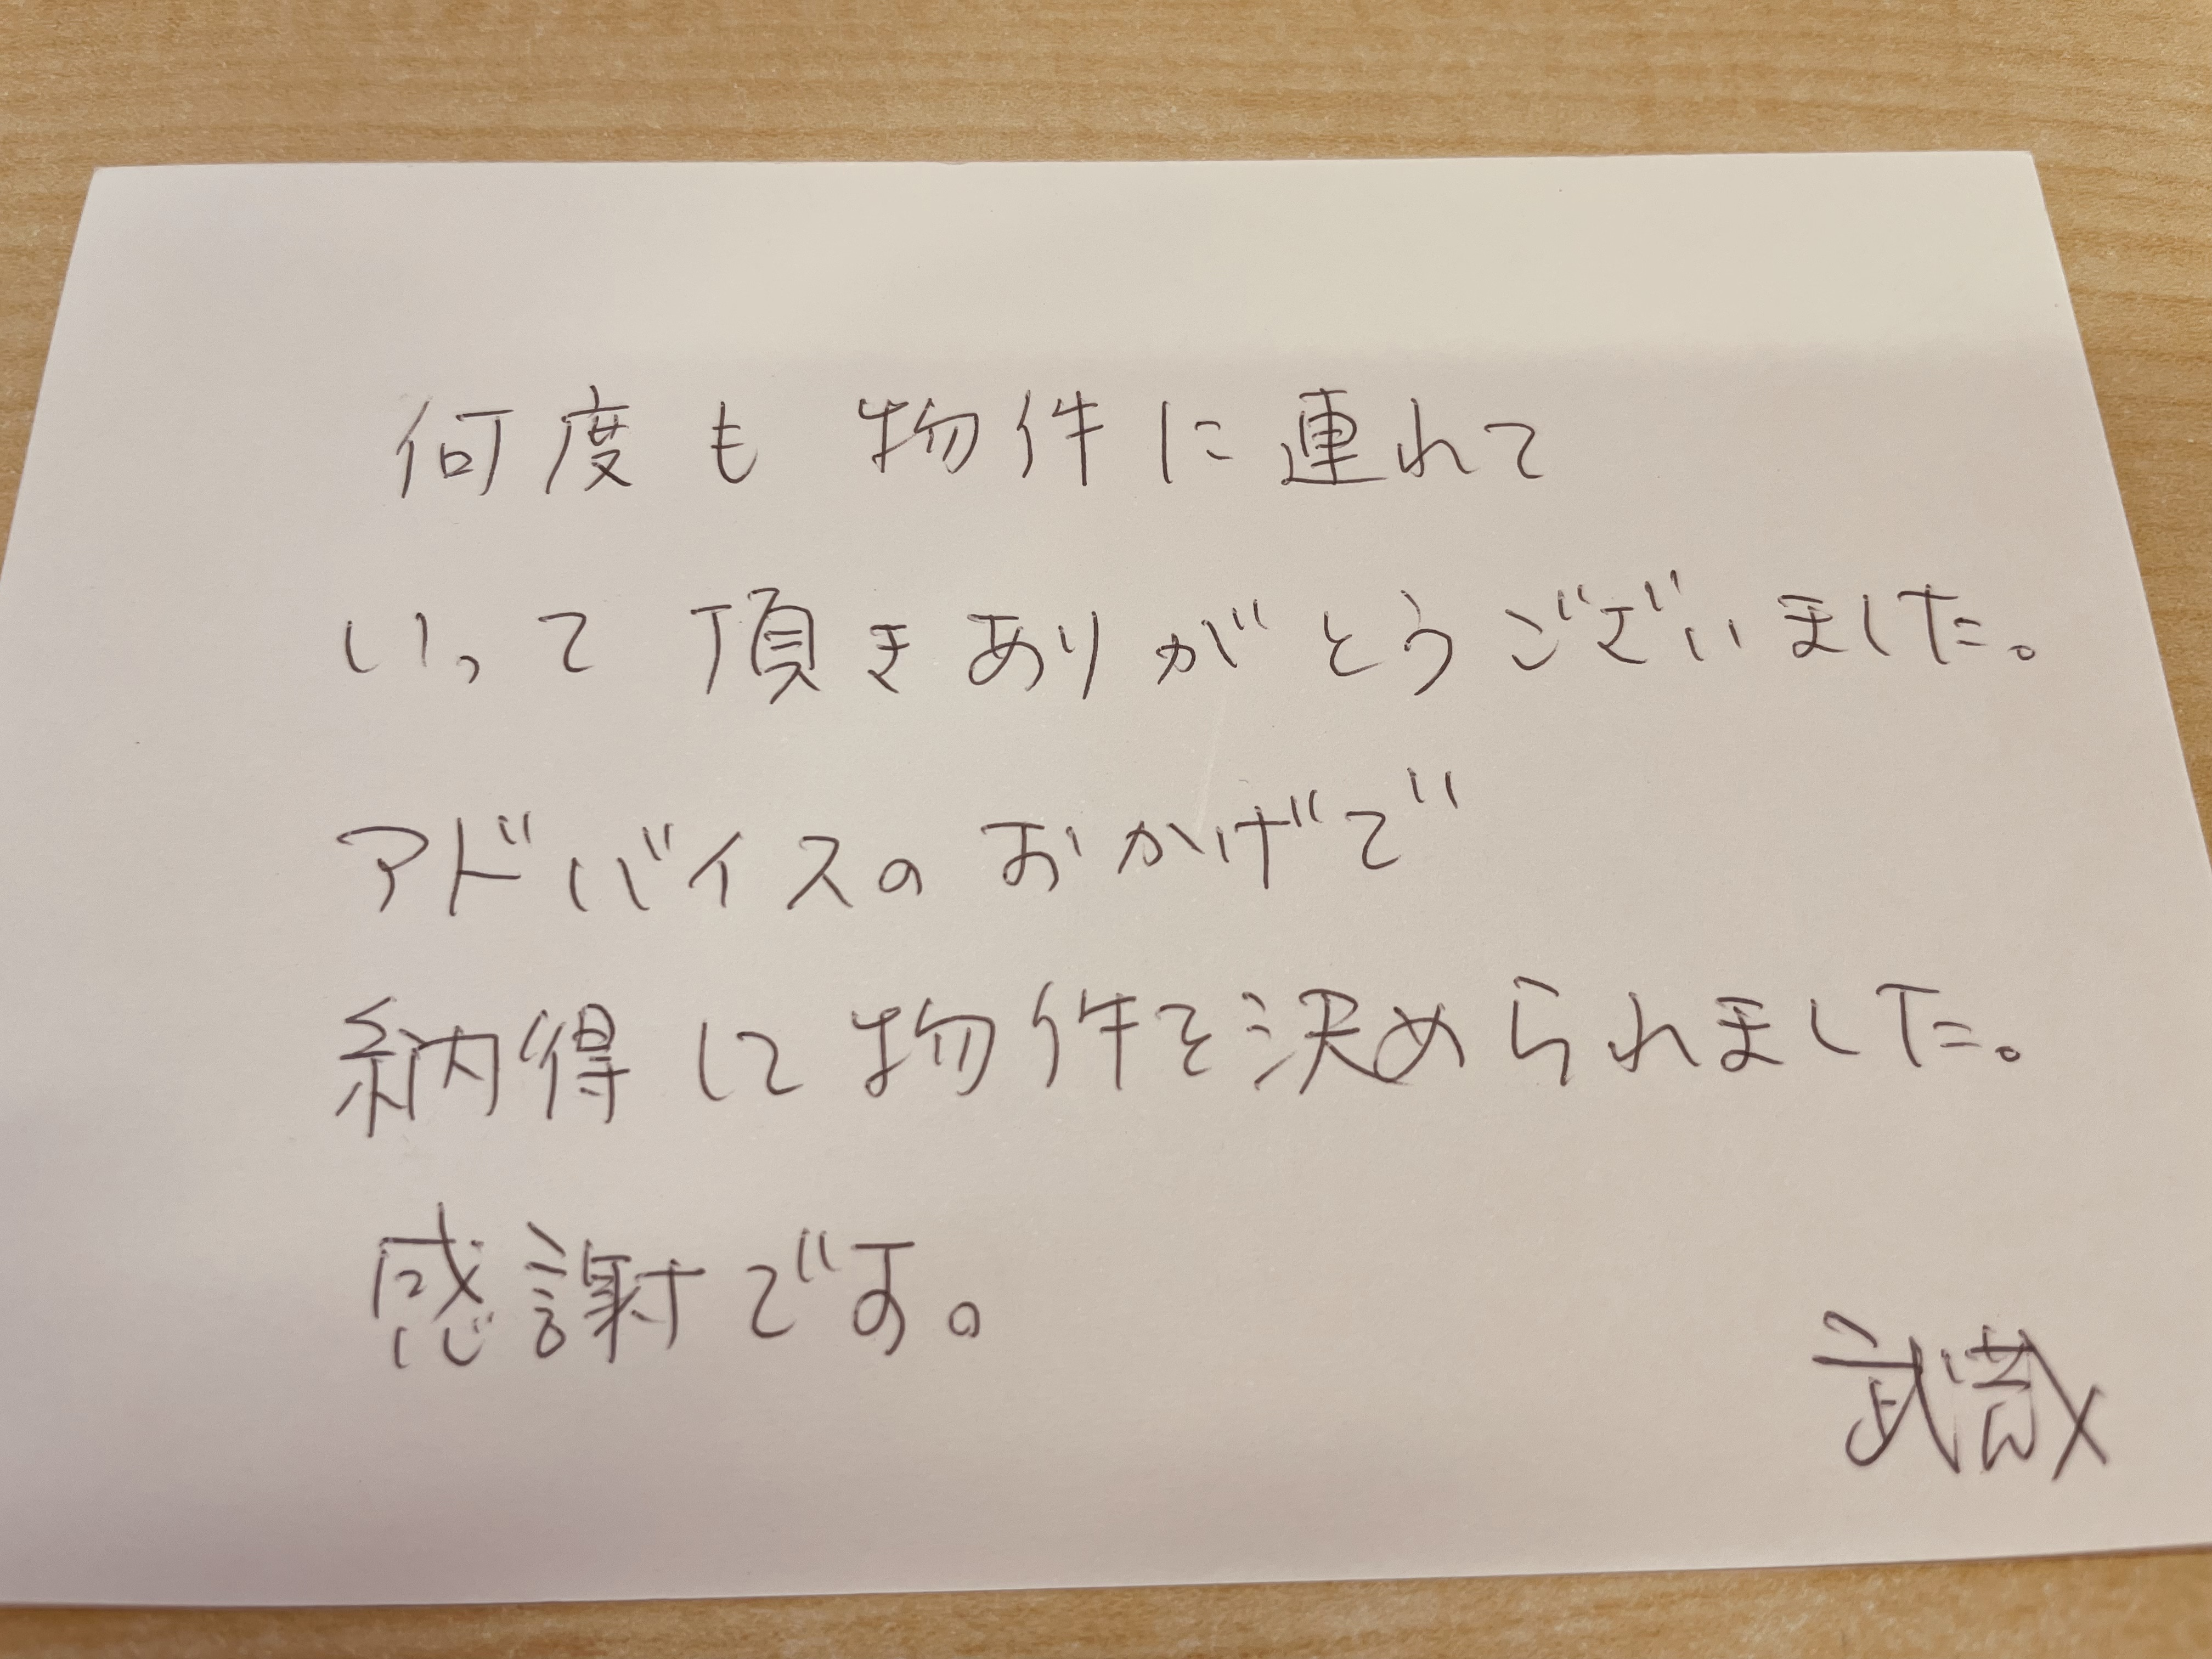 何度も物件に連れて
いって頂きありがとうございました。
アドバイスのおかげで
納得して物件を決められました。
感謝です。